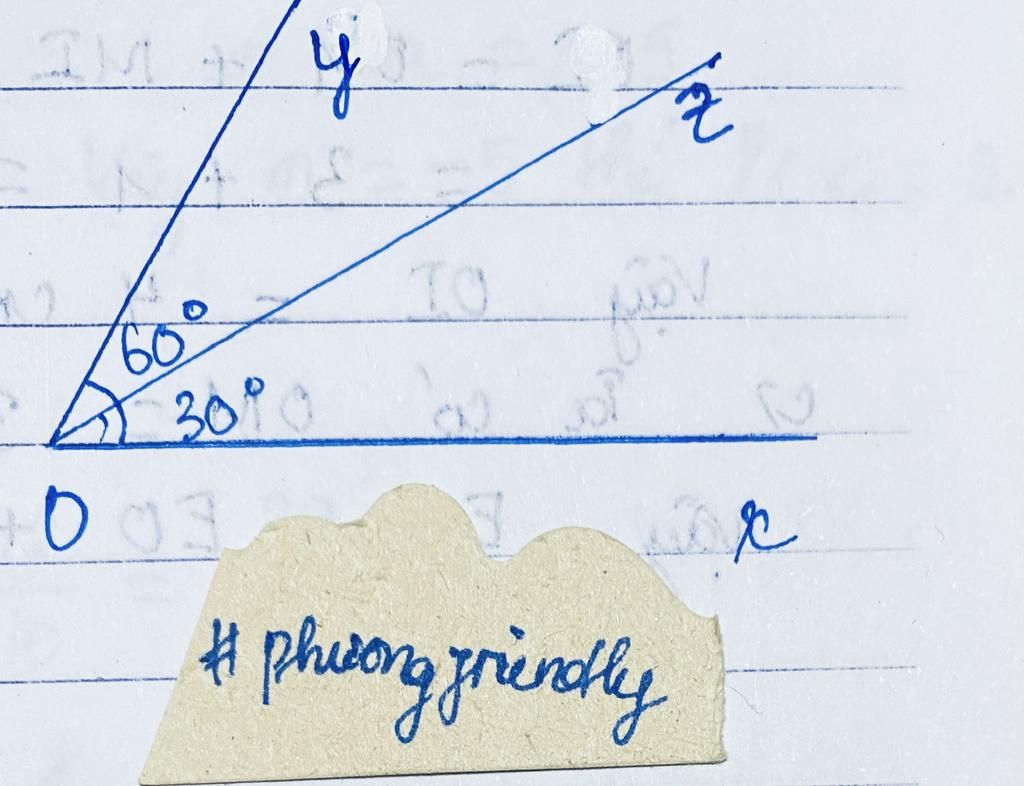 y
z
60°
30°
O
x
# phuong friendly